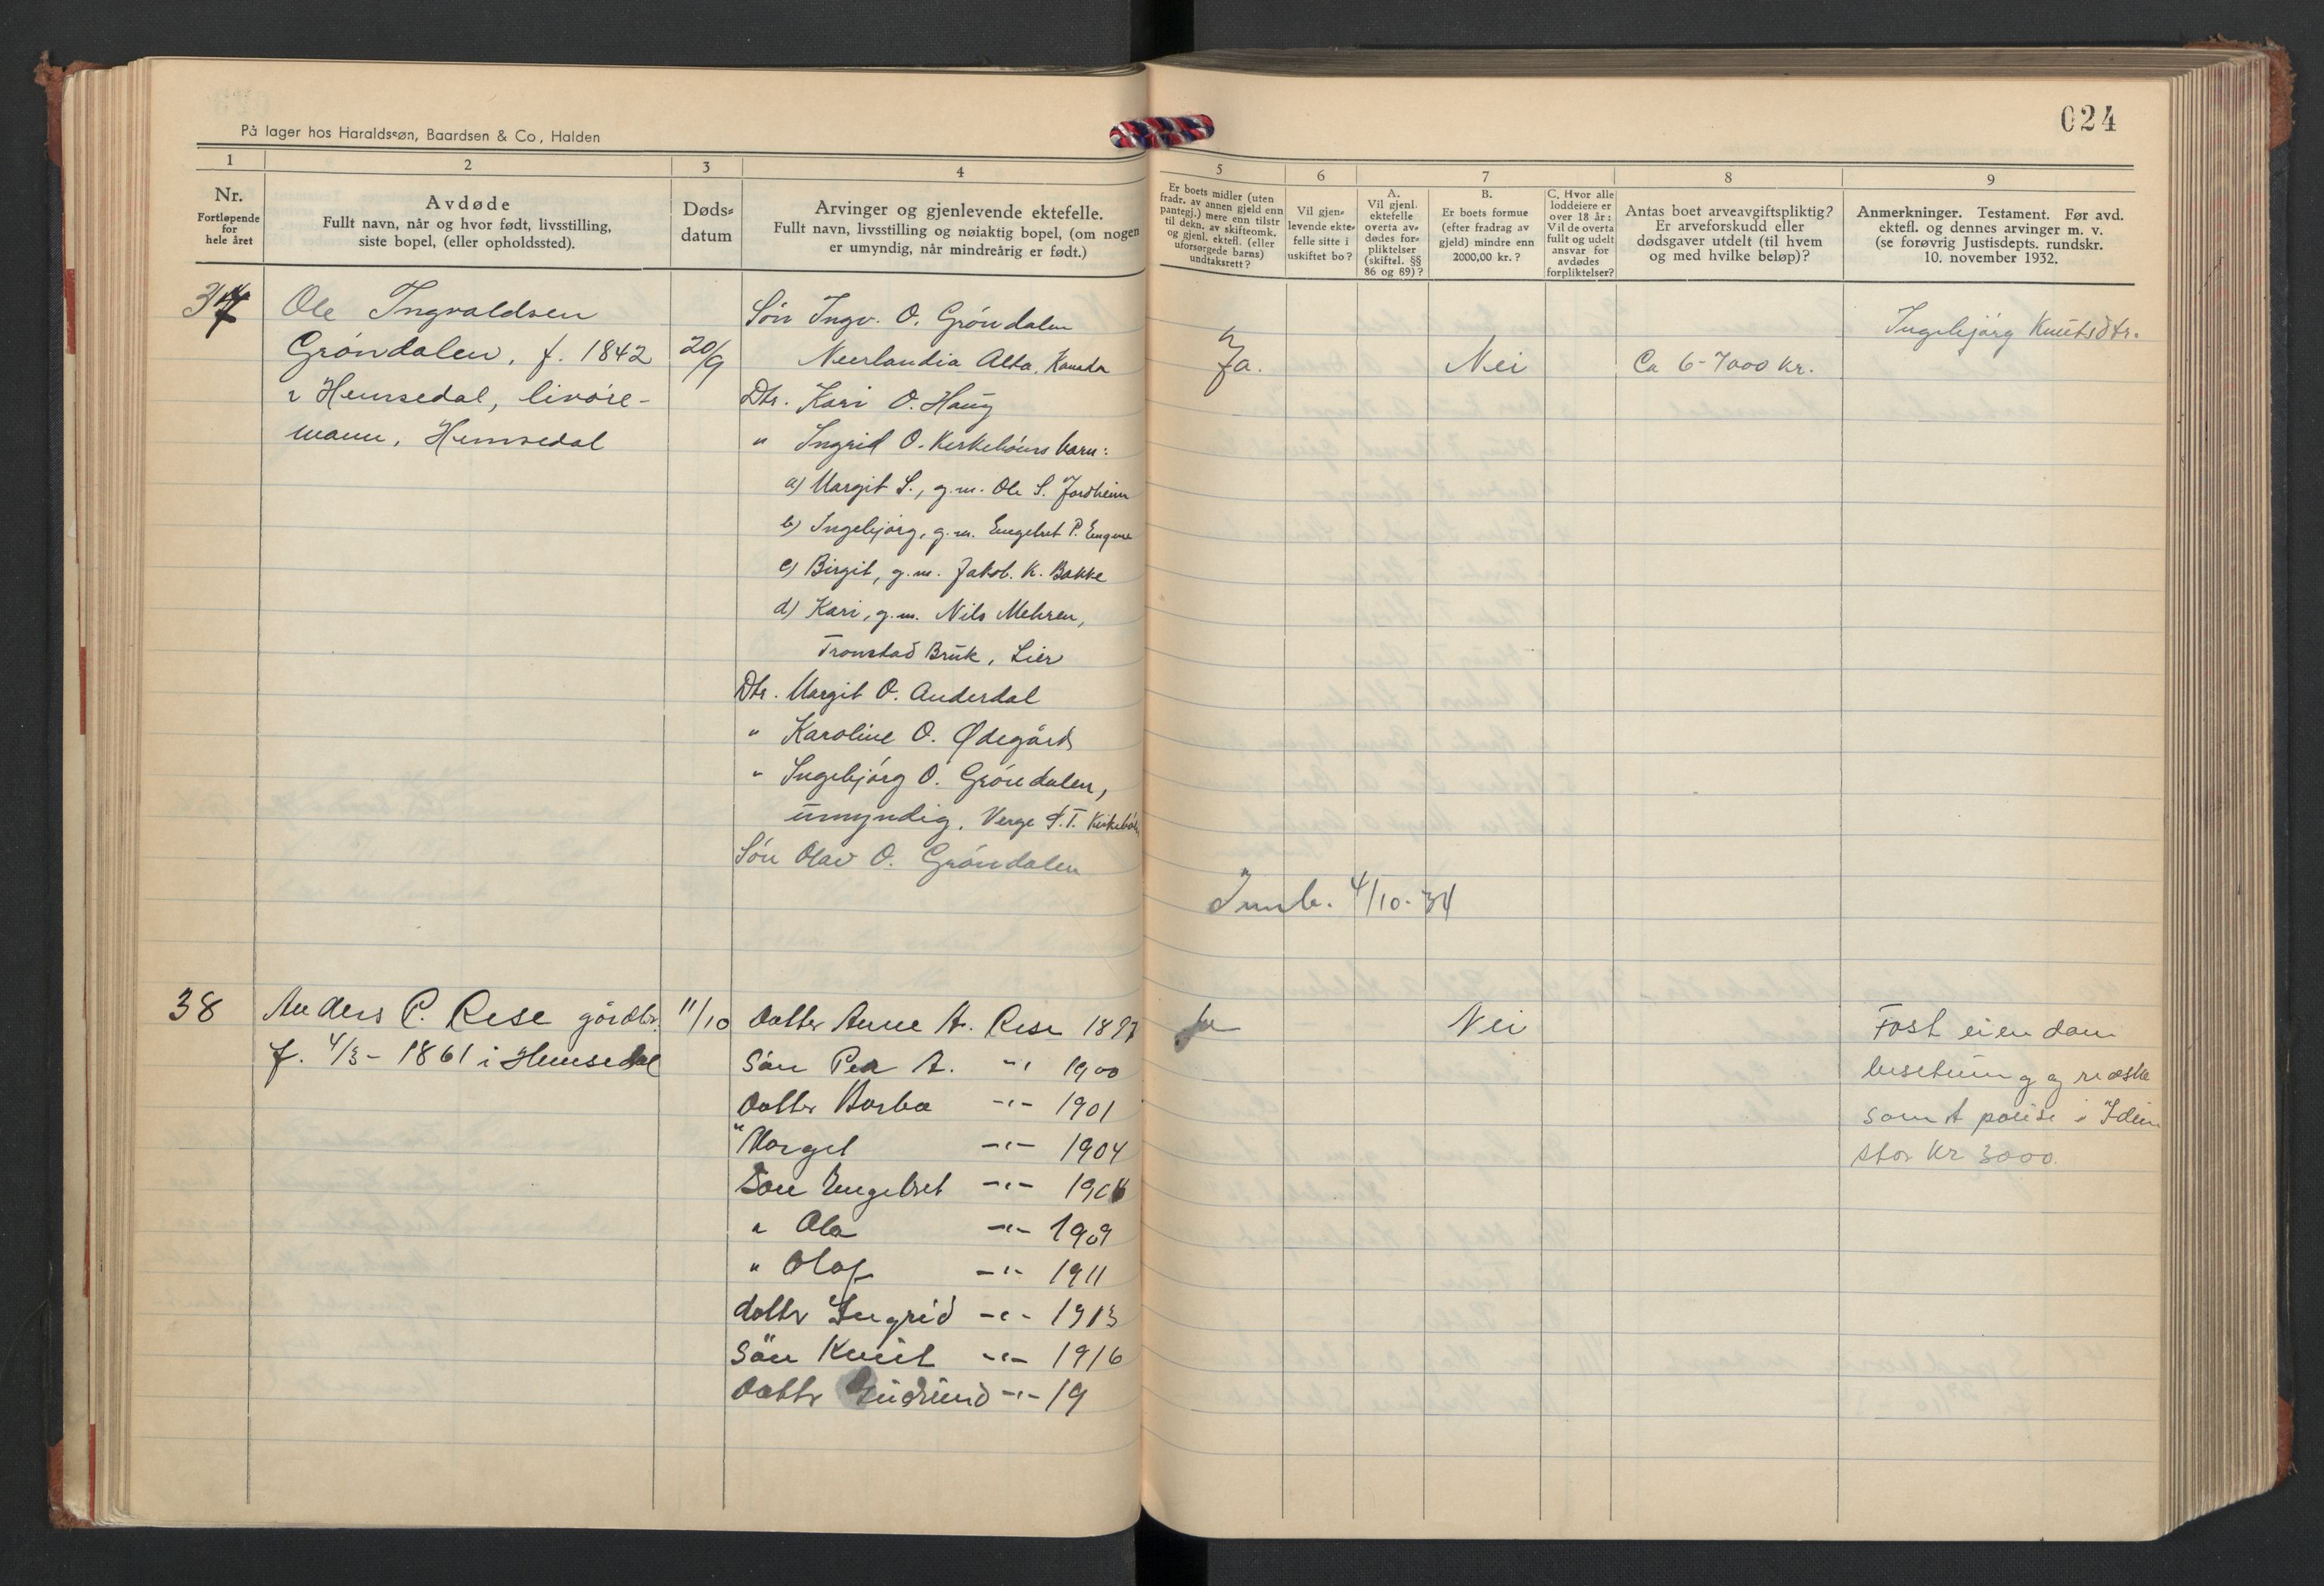 024
På lager hos Haraldssøn, Baardsen & Co, Halden
1 2 3 4 5 6 7 8 9
Nr.
Fortløpende
for
hele året
Avdøde
Fullt navn, når og hvor født, livsstilling,
siste bopel, (eller opholdssted).
Døds-
datum
Arvinger og gjenlevende ektefelle.
Fullt navn, livsstilling og nøiaktig bopel, (om nogen
er umyndig, når mindreårig er født.)
Er boets midler (uten
fradr. av annen gjeld enn
pantegj.) mere enn tilstr
til dekn. av skifteomk.
og gjenl. ektefl. (eller
uforsørgede barns)
undtaksrett?
Vil gjen-
levende ekte-
felle sitte i
uskiftet bo?
A.
Vil gjenl.
ektefelle
overta av-
dødes for-
pliktelser
(skiftel. §§
86 og 89)?
B.
Er boets formue
(efter fradrag av
gjeld) mindre enn
2000,00 kr.?
C. Hvor alle
loddeiere er
over 18 år:
Vil de overta
fullt og udelt
ansvar for
avdødes
forpliktelser?
Antas boet arveavgiftspliktig?
Er arveforskudd eller
dødsgaver utdelt (til hvem
og med hvilke beløp)?
Anmerkninger. Testament. Før avd.
ektefl. og dennes arvinger m. v.
(se forøvrig Justisdepts. rundskr.
10. november 1932.
37
Ole Ingvaldsen
Gröndalen, f. 1842
i Hemsedal, livöre-
mann, Hemsedal
20/9
Sön Ingv. O. Gröndalen
Neerlandia Alta, Kanada
Dtr. Kari O. Haug
" Ingrid O. Kirkeböens barn:
a) Margit S., g.m. Ole S. Jordheim
b) Ingebjörg, g.m. Engebret P. Engene
c) Birgit, g.m. Jakob. K. Bakke
d) Kari, g.m. Nils Mehren,
Tronstad Bruk, Lier
Dtr. Margit O. Anderdal
" Karoline O. Ødegård
" Ingebjörg O. Gröndalen,
umyndig. Verge S.T. Kirkeböen
Sön Olav O. Gröndalen
Ja.
Nei
Ca 6-7000 kr.
Ingebjörg Knutsdtr.
Innb. 4/10-34
38
Anders P. Rese gårdbr.
f. 4/3-1861 i Hemsedal
11/10
Datter Anne A. Rese 1897
Sön Per A. -"- 1900
Datter Barbo -"- 1901
" Margit -"- 1904
Sön Engebret -"- 1906
" Ola -"- 1909
" Olaf -"- 1911
datter Ingrid -"- 1913
Sön Knut -"- 1916
Datter Gudrund -"- 19
Ja
Nei
Fast eiendom
besetning og redska
samt polise i "Idun
stor Kr 3000.